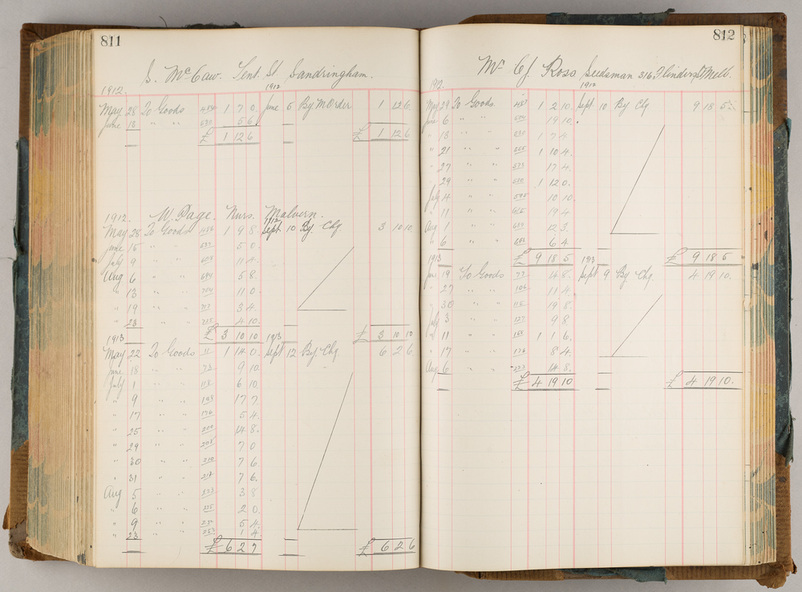 811
S. McCaw. Tent St Sandringham.
1912 1912
May 28 To Goods 1 7 0 June 6 By M Order 1 12 6
June 10 " " 5 6
£ 1 12 6 £ 1 12 6
1912 W Page. Nurs. Malvern.
1912
May 28 To Goods 1 9 8 Sept 10 By Chq 3 10 10
June 15 " " 5 0
July 9 " " 11 4
Aug 6 " " 5 8
" 13 " " 11 0
" 19 " " 3 4
" 23 " " 4 10
£ 3 10 10 £ 3 10 10
1913 1913
May 22 To Goods 1 14 0 Sept 12 By Chq 6 2 6
June 18 " " 9 10
July 1 " " 6 10
" 9 " " 17 7
" 17 " " 5 4
" 25 " " 14 8
" 29 " " 7 0
" 30 " " 7 6
" 31 " " 7 6
Aug 5 " " 3 8
" 6 " " 2 0
" 9 " " 5 4
" 23 " " 1 4
£ 6 2 7 £ 6 2 6
812
Mr C J Ross Seedsman 316 Flinders St Melb.
191 1912
May 29 To Goods 1 2 10 Sept 10 By Chq 9 18 5
June 6 " " 19 10
" 13 " " 1 7 4
" 21 " " 1 10 4
" 27 " " 17 4
" 29 " " 1 12 0
July 4 " " 10 10
" 11 " " 19 4
Aug 1 " " 12 3
" 6 " " 6 4
£ 9 18 5 £ 9 18 5
1913 1913
Jun 19 To Goods 14 8 Sept 9 By Chq 4 19 10
" 27 " " 11 4
" 30 " " 19 8
July 3 " " 9 8
" 11 " " 1 1 6
" 17 " " 8 4
Aug 6 " " 14 8
£ 4 19 10 £ 4 19 10